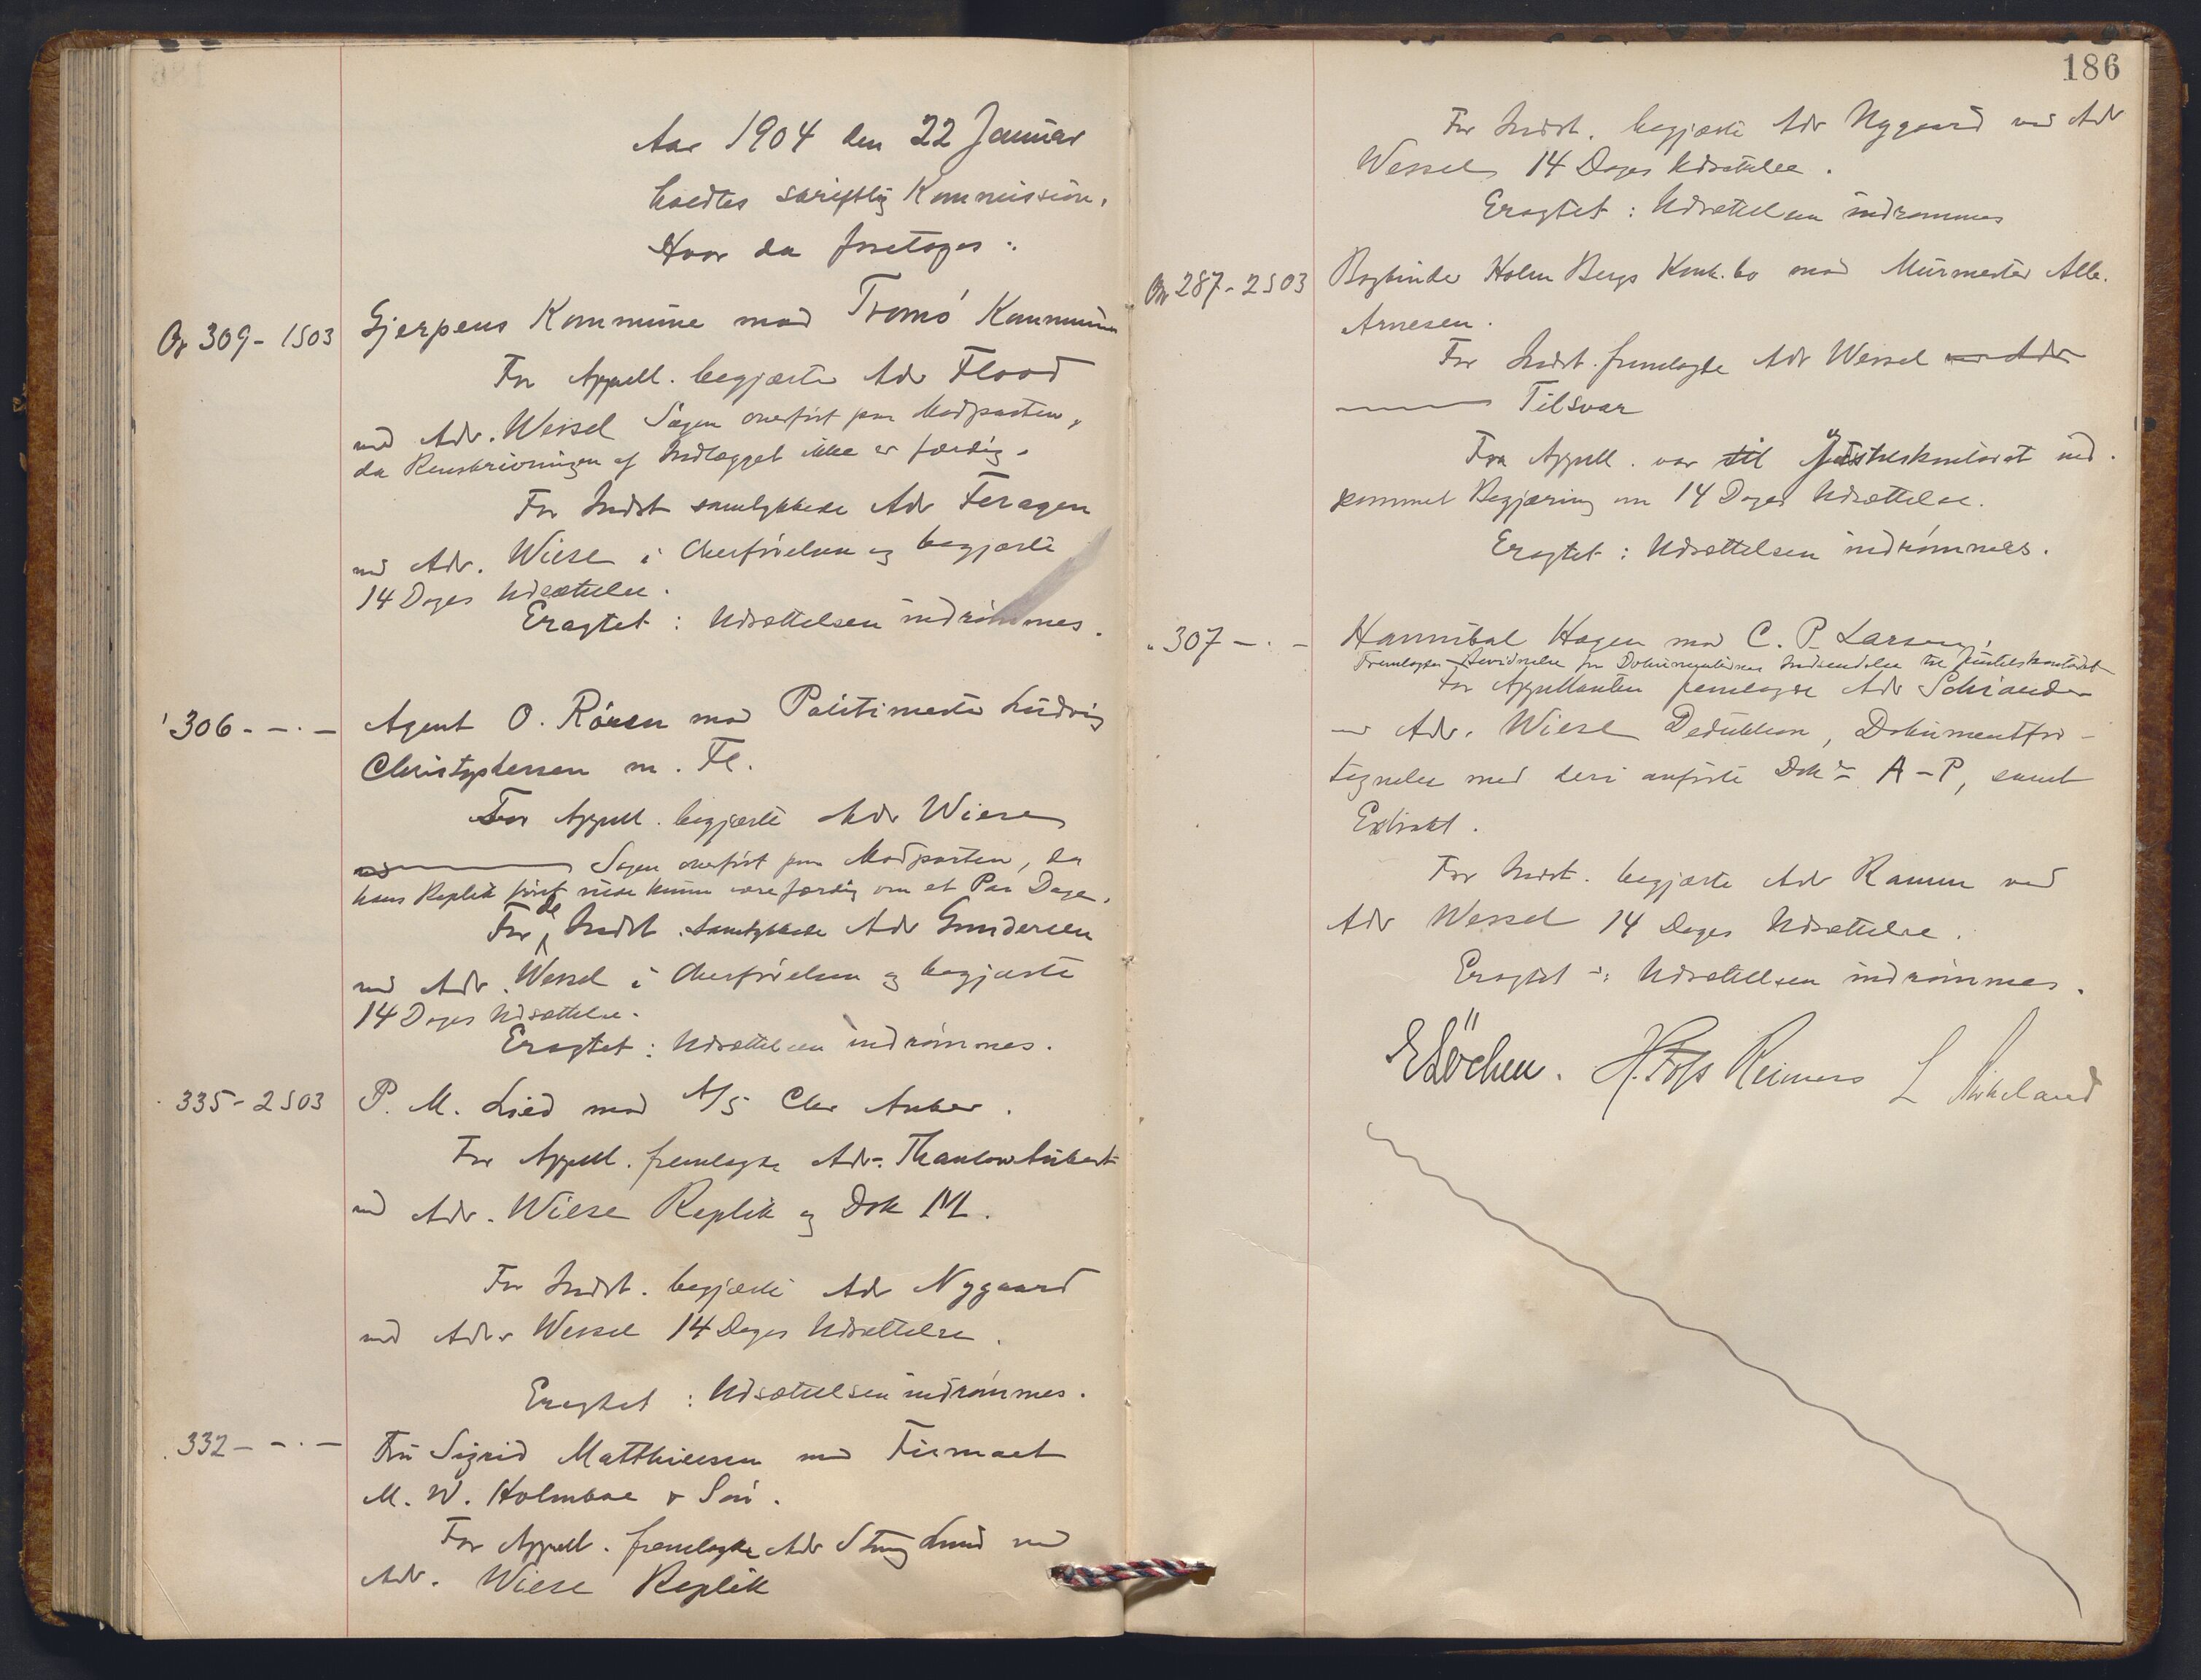 Aar 1904 den 22 Januar
holdtes skriftlig Kommission.
Hvor da foretoges:
Or 309 - 1S03 Gjerpens Kommune mod Tromø Kommune
For Appell. begjærte Adv Flood
ved Adv. Wessel Sagen overført paa Modparten,
da Renskrivningen af Indlægget ikke er færdig.
For Indst samtykkede Adv Feragen
ved Adv. Wiese i Overførelsen og begjærte
14 Dages Udsættelse.
Eragtet: Udsættelsen indrømmes.
306 - - . - Agent O. Røren mod Politimester Ludvig
Christophersen m. Fl.
For Appell. begjærte Adv Wiese
ved Sagen overført paa Modparten, da
hans Replik først vilde kunne være færdig om et Par Dage.
For de Indst. samtykkede Adv Gundersen
ved Adv. Wessel i Overførelsen og begjærte
14 Dages Udsættelse.
Eragtet: Udsættelsen indrømmes.
335 - 2S03 P. M. Lied mod A/S Chr Anker.
For Appell. fremlagde Adv. Thaulow Aubert
ved Adv. Wiese Replik og Dok M.
For Indst. begjærte Adv Nygaard
ved Adv Wessel 14 Dages Udsættelse.
Eragtet: Udsættelsen indrømmes.
332 - - . - Fru Sigrid Matthiesen mod Firmaet
M. W. Holmboe & Søn.
For Appell. fremlagde Adv Stang Lund ved
Adv. Wiese Replik
186
For Indst. begjærte Adv Nygaard ved Adv
Wessel 14 Dages Udsættelse.
Eragtet: Udsættelsen indrømmes
Or 287 - 2S03 Bogbinder Holm Bergs Konk.bo mod Murmester Alb.
Arnesen.
For Indst. fremlagde Adv Wessel ved Adv
Tilsvar
Fra Appell. var til Justitskontoret ind-
kommet Begjæring om 14 Dages Udsættelse.
Eragtet: Udsættelsen indrømmes.
" 307 - . - Hannibal Hagen mod C. P. Larsen.
Fremlagdes Bevidnelse for Dokumenternes Indsendelse til Justitskontoret
For Appellanten fremlagde Adv Schiander
ved Adv. Wiese Deduktion, Dokumentfor-
tegnelse med deri anførte Dok. A-P, samt
Extrakt.
For Indst. begjærte Adv Ramm ved
Adv Wessel 14 Dages Udsættelse.
Eragtet: Udsættelsen indrømmes.
E Løchen. H. Foss Reimers L Mirkeland